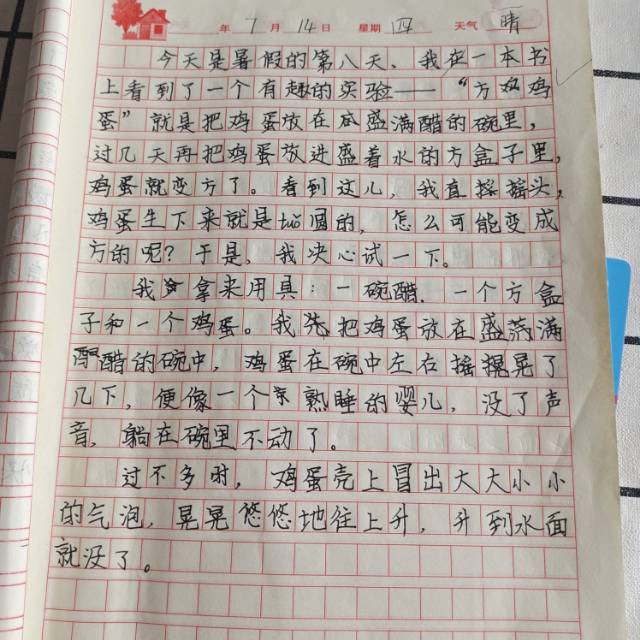 年 7月 14日 星期 四 天气 晴
今天是暑假的第八天,我在一本书
上看到了一个有趣的实验——“方鸡
蛋”就是把鸡蛋放在盛满醋的碗里,
过几天再把鸡蛋放进盛着水的方盒子里,
鸡蛋就变方了。看到这儿,我直摇摇头,
鸡蛋生下来就是圆的,怎么可能变成
方的呢?于是,我决心试一下。
我拿来用具:一碗醋.一个方盒
子和一个鸡蛋。我先把鸡蛋放在盛满
醋的碗中,鸡蛋在碗中左右摇晃了
几下,便像一个熟睡的婴儿,没了声
音,躺在碗里不动了。
过不多时,鸡蛋壳上冒出大大小小
的气泡,晃晃悠悠地往上升,升到水面
就没了。